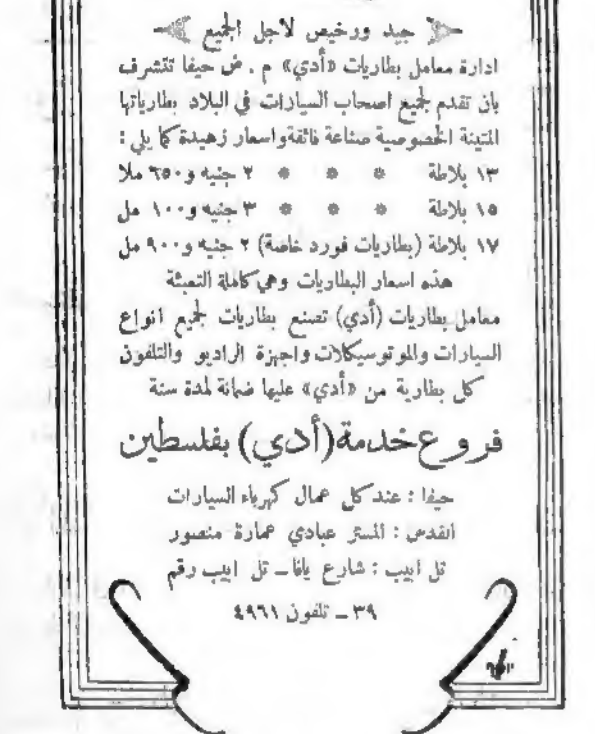 جيد ورخيص لاجل الجميع
ادارة معامل بطاريات «أدي» م . ض حيفا تتشرف
بان تقدم لجميع اصحاب السيارات في البلاد بطارياتها
المتينة الخصوصية صناعة فائقة واسعار زهيدة كما يلي :
١٣ بلاطة * * * ٢ جنيه و٦٥٠ ملا
١٥ بلاطة * * * ٣ جنيه و١٠٠ مل
١٧ بلاطة (بطاريات فورد خاصة) ٢ جنيه و٩٠٠ مل
هذه اسعار البطاريات وهي كاملة التعبئة
معامل بطاريات (أدي) تصنع بطاريات لجميع انواع
السيارات والموتوسيكلات واجهزة الراديو والتلفون
كل بطارية من «أدي» عليها ضمانة لمدة سنة
فروع خدمة (أدي) بفلسطين
حيفا : عند كل عمال كهرباء السيارات
القدس : المستر عبادي عمارة منصور
تل ابيب : شارع يافا ــ تل ابيب رقم
٣٩ ــ تلفون ٤٩٦١